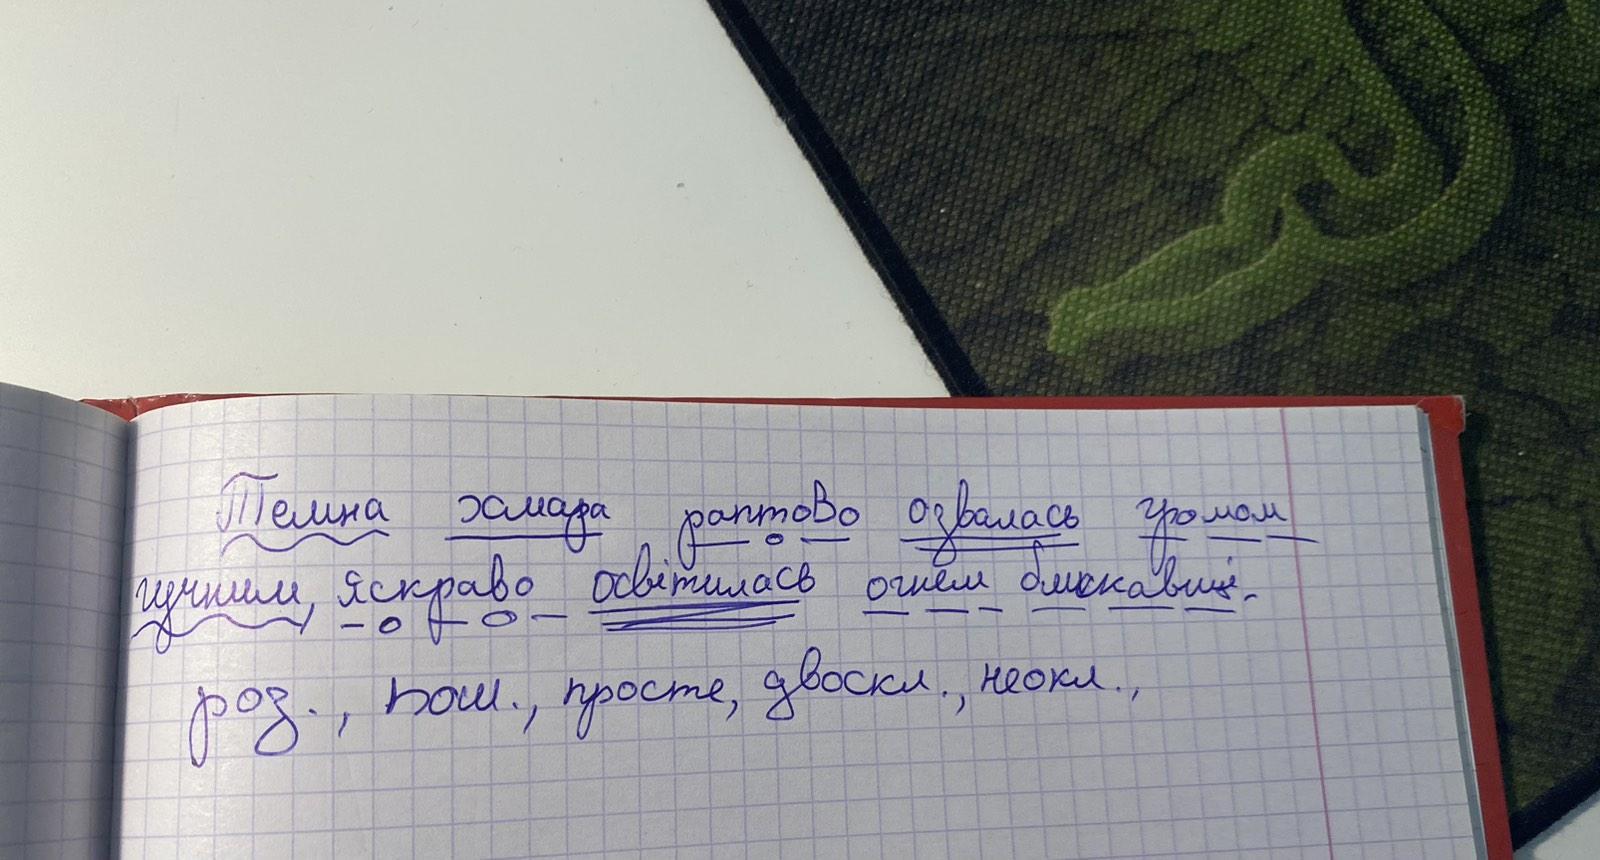 Темна хмара раптово озвалась громом
гучним, яскраво освітилась огнем блискавиці.
роз., пош., просте, двоскл., неокл.,